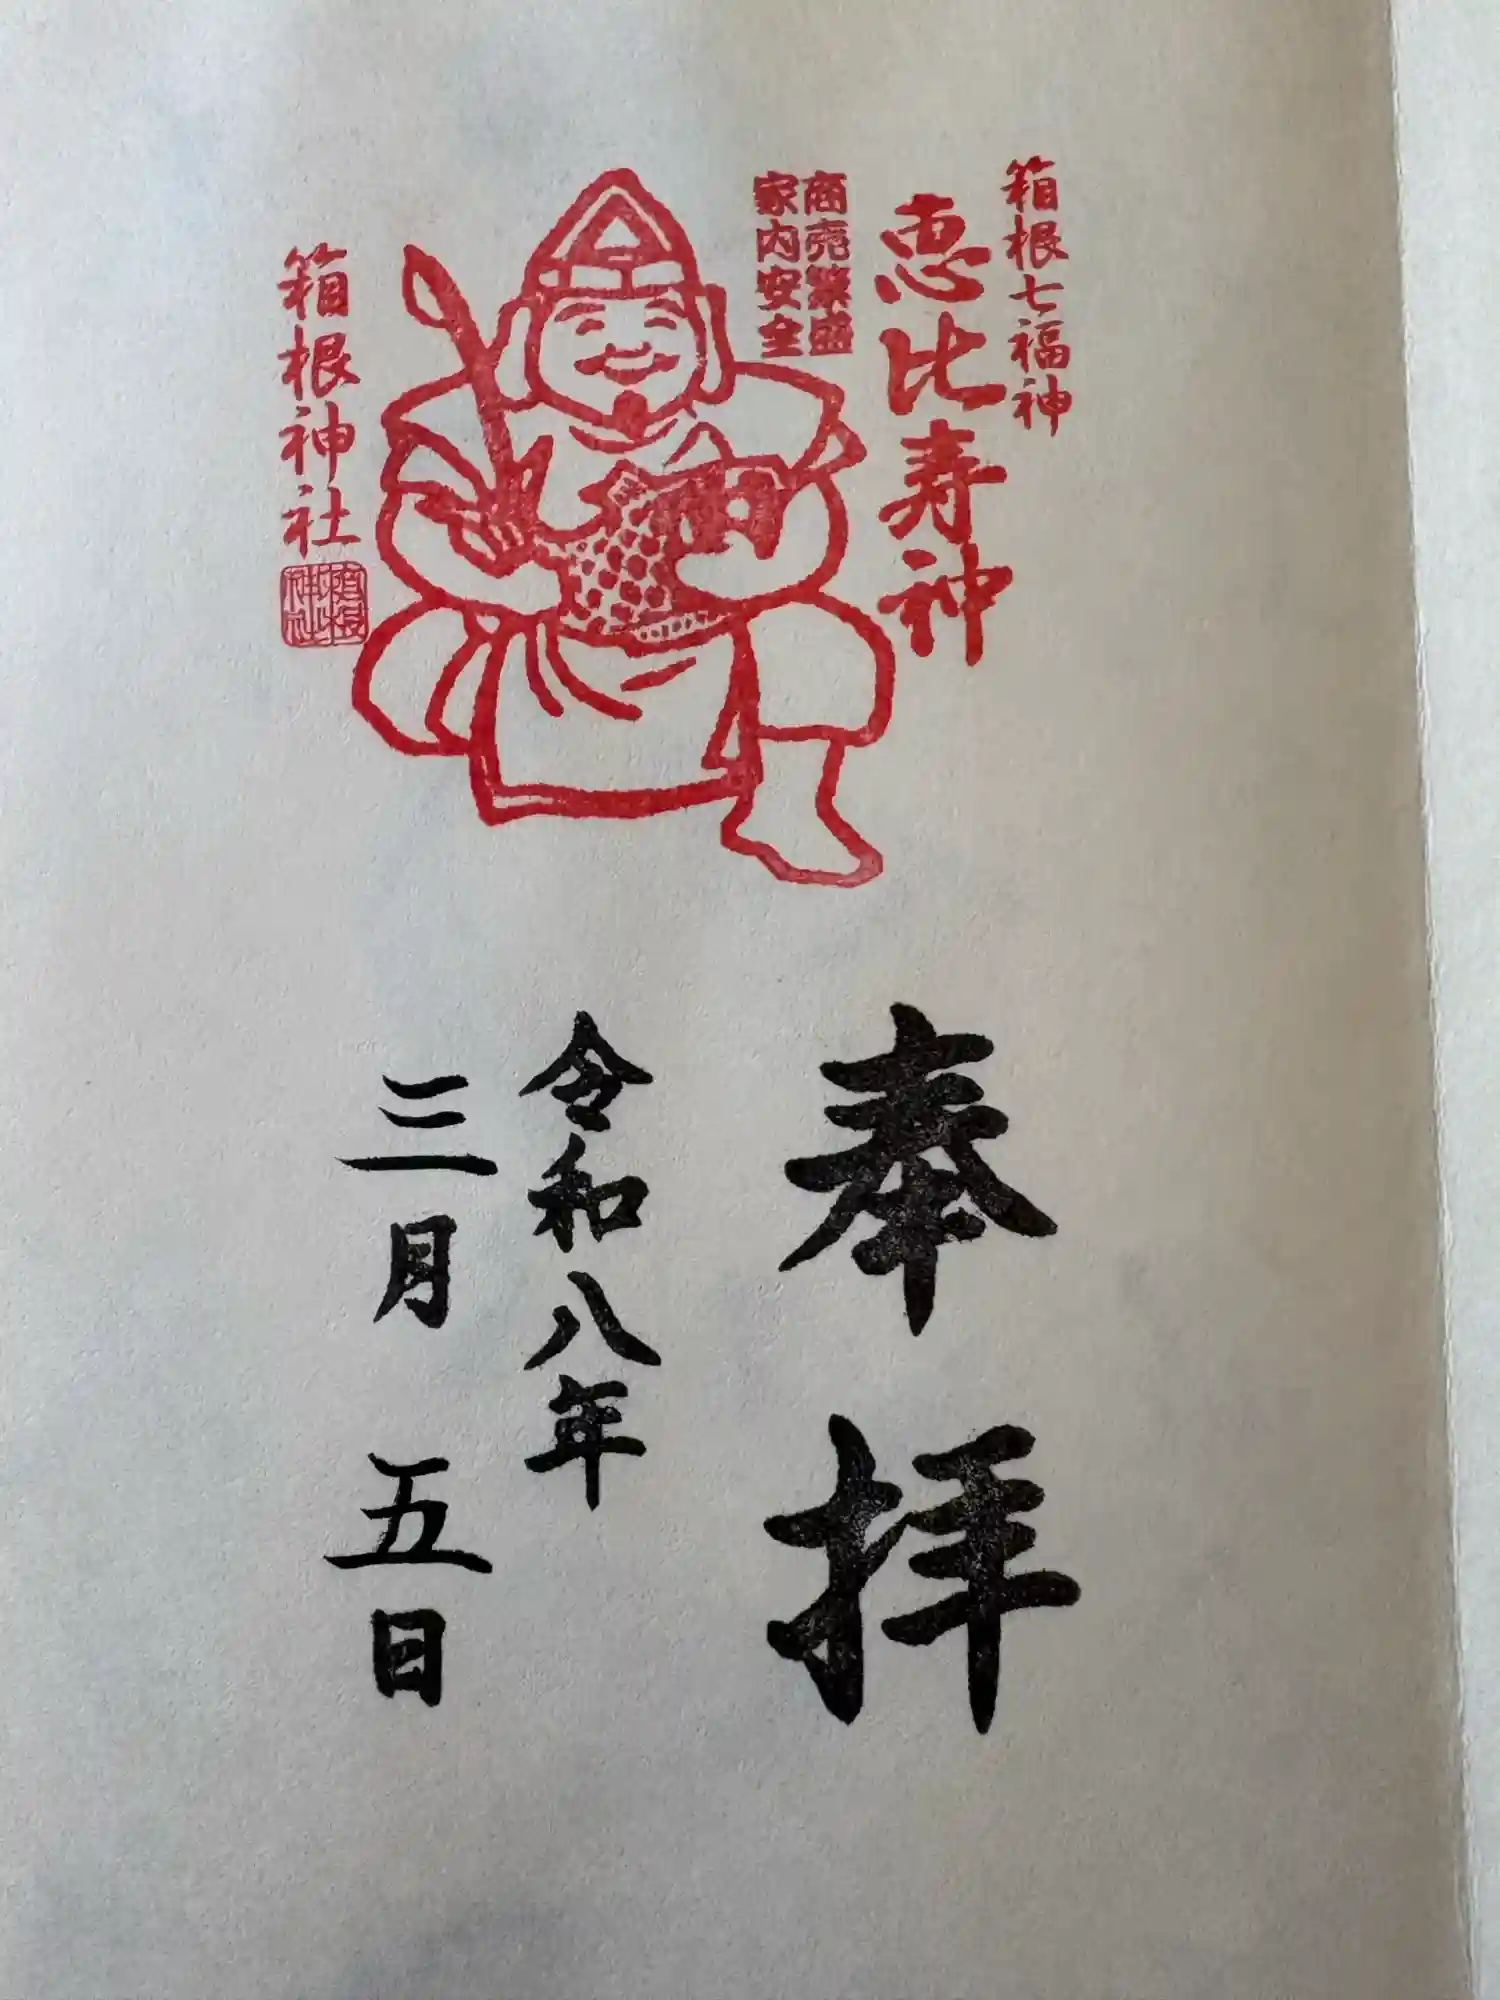 箱根七福神
恵比寿神
商売繁盛
家内安全
箱根神社
箱根
神社
奉拝
令和八年
三月五日